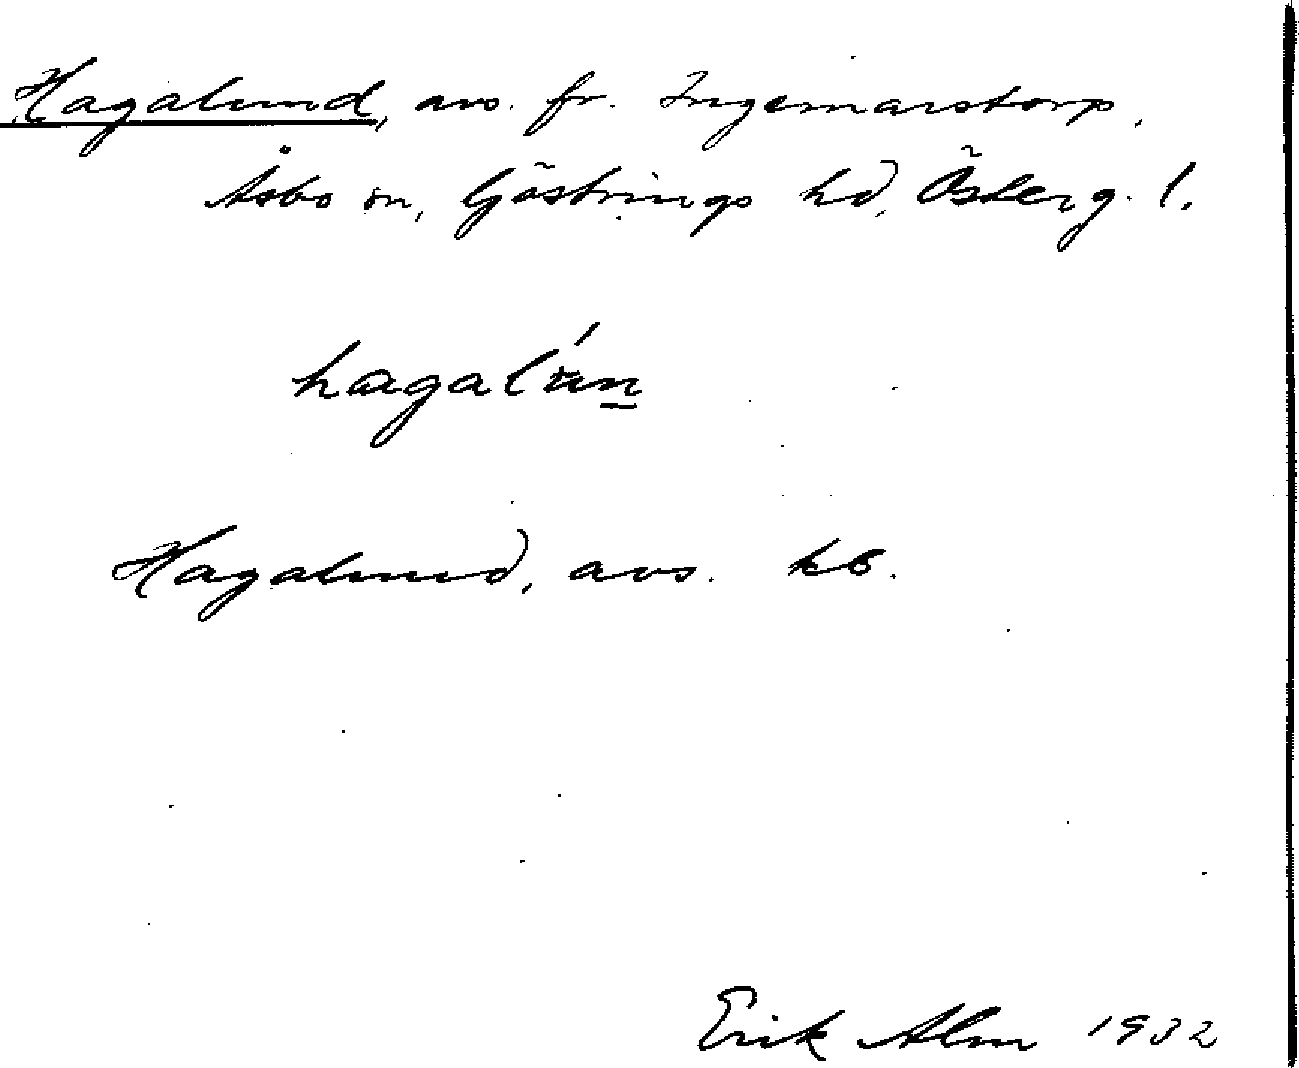 Hagalund, avs. fr. Ingemarstorp,
Åsbo sn, Göstrings hd, Österg. l.
hagalún
Hagalund, avs. kb.
Erik Alm 1932